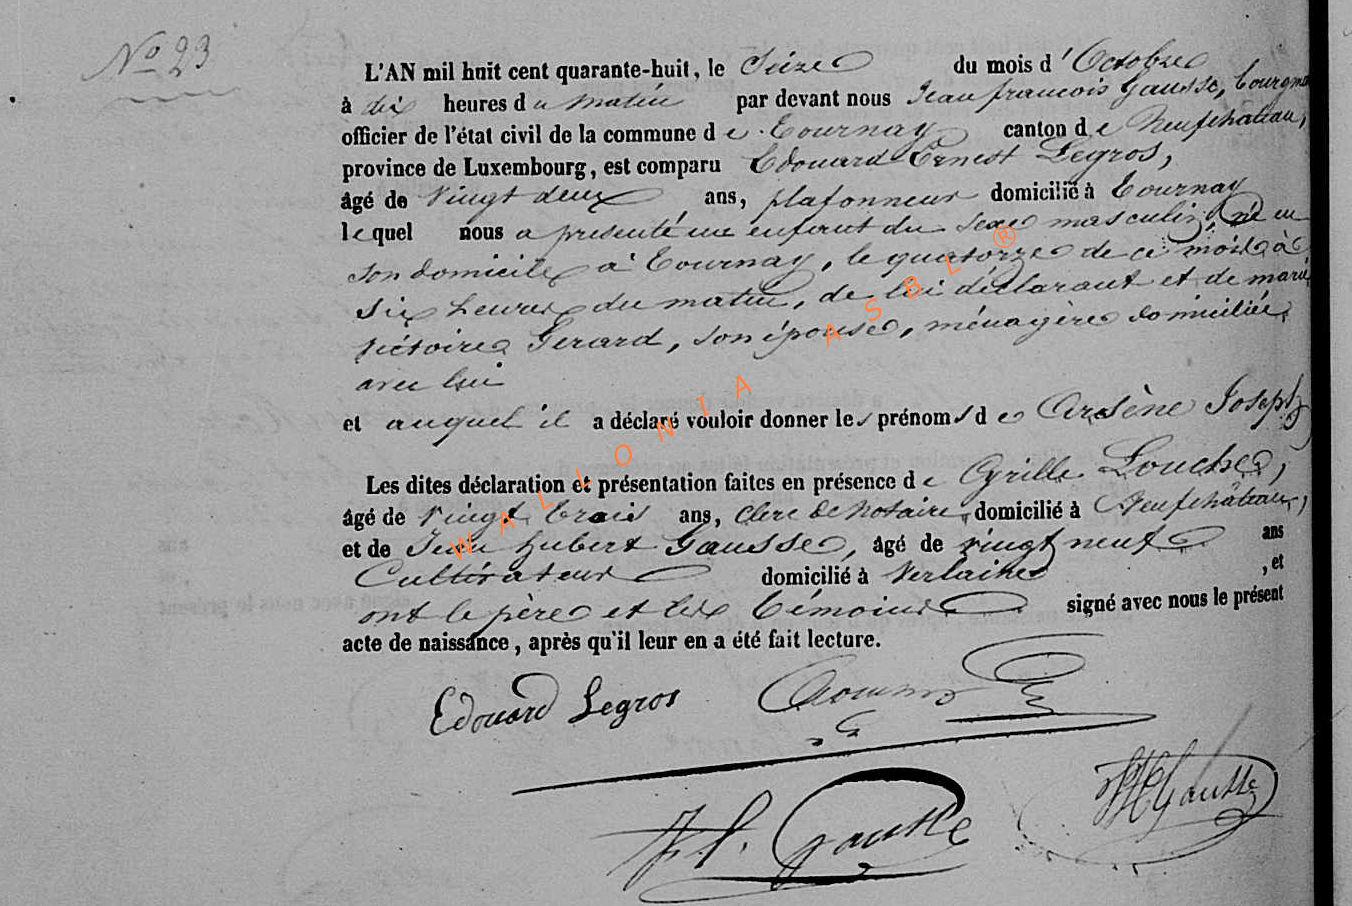 No 23
L'AN mil huit cent quarante-huit, le Seize du mois d'Octobre
à dix heures du matin par devant nous Jean françois Gausse, bourgm
officier de l'état civil de la commune de Tournay canton de Neufchateau,
province de Luxembourg, est comparu Edouard Ernest Legros,
âgé de Vingt deux ans, plafonneur domicilié à Tournay
lequel nous a presenté un enfant du sexe masculin né en
son domicile à Tournay, le quatorze de ce mois à
six heures du matin, de lui déclarant et de marie
victoire Gerard, son épouse, ménagère domiciliée
avec lui
et auquel il a déclaré vouloir donner les prénoms de Arsène Joseph
Les dites déclaration et présentation faites en présence de Cyrille Louche,
âgé de Vingt trois ans, clerc de Notaire, domicilié à Neufchâteau,
et de Jean hubert Gausse, âgé de vingt neuf ans
Cultivateur domicilié à Verlaine , et
ont le père et les témoins signé avec nous le présent
acte de naissance, après qu'il leur en a été fait lecture.
Edouard Legros
J. f. Gausse
JH Gausse
WALLONIA ASBL ®